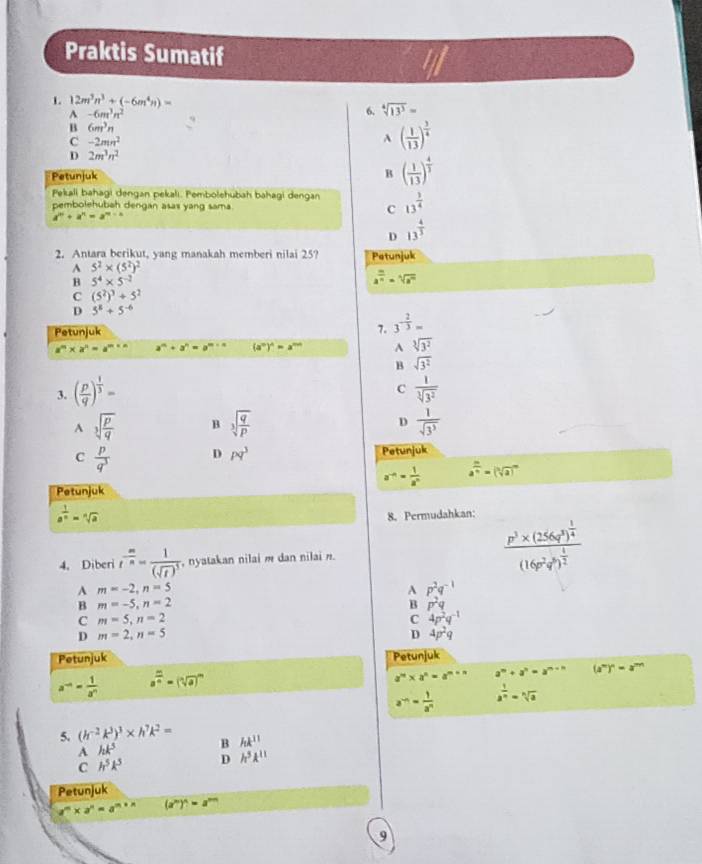 Praktis Sumatif
1. 12m⁵n³ ÷ (−6m⁴n) =
A −6m³n²
B 6m³n
C −2mn²
D 2m³n²
Petunjuk
Pekali bahagi dengan pekali. Pembolehubah bahagi dengan
pembolehubah dengan asas yang sama.
aᵐ ÷ aⁿ = aᵐ⁻ⁿ
2. Antara berikut, yang manakah memberi nilai 25?
A 5² × (5²)²
B 5⁴ × 5⁻²
C (5²)³ ÷ 5²
D 5⁸ ÷ 5⁻⁶
Petunjuk
aᵐ × aⁿ = aᵐ⁺ⁿ aᵐ ÷ aⁿ = aᵐ⁻ⁿ (aᵐ)ⁿ = aᵐⁿ
3. (p/q)^(1/3) =
A ∛(p/q) B ∛(q/p)
C p/q³ D pq³
Petunjuk
a^(1/n) = ⁿ√a
4. Diberi t^(−m/n) = 1/(√t)⁵, nyatakan nilai m dan nilai n.
A m = −2, n = 5
B m = −5, n = 2
C m = 5, n = 2
D m = 2, n = 5
Petunjuk
a⁻ⁿ = 1/aⁿ a^(m/n) = (ⁿ√a)ᵐ
5. (h⁻²k³)³ × h⁷k² =
A hk⁵ B hk¹¹
C h⁵k⁵ D h⁵k¹¹
Petunjuk
aᵐ × aⁿ = aᵐ⁺ⁿ (aᵐ)ⁿ = aᵐⁿ
6. ⁴√13³ =
A (1/13)^(3/4)
B (1/13)^(4/3)
C 13^(3/4)
D 13^(4/3)
Petunjuk
a^(m/n) = ⁿ√aᵐ
7. 3^(−2/3) =
A ∛3²
B √3²
C 1/∛3²
D 1/√3³
Petunjuk
a⁻ⁿ = 1/aⁿ a^(m/n) = (ⁿ√a)ᵐ
8. Permudahkan:
p³ × (256q⁸)^(1/4) / (16p²q⁶)^(1/2)
A p²q⁻¹
B p²q
C 4p²q⁻¹
D 4p²q
Petunjuk
aᵐ × aⁿ = aᵐ⁺ⁿ aᵐ ÷ aⁿ = aᵐ⁻ⁿ (aᵐ)ⁿ = aᵐⁿ
a⁻ⁿ = 1/aⁿ a^(1/n) = ⁿ√a
9